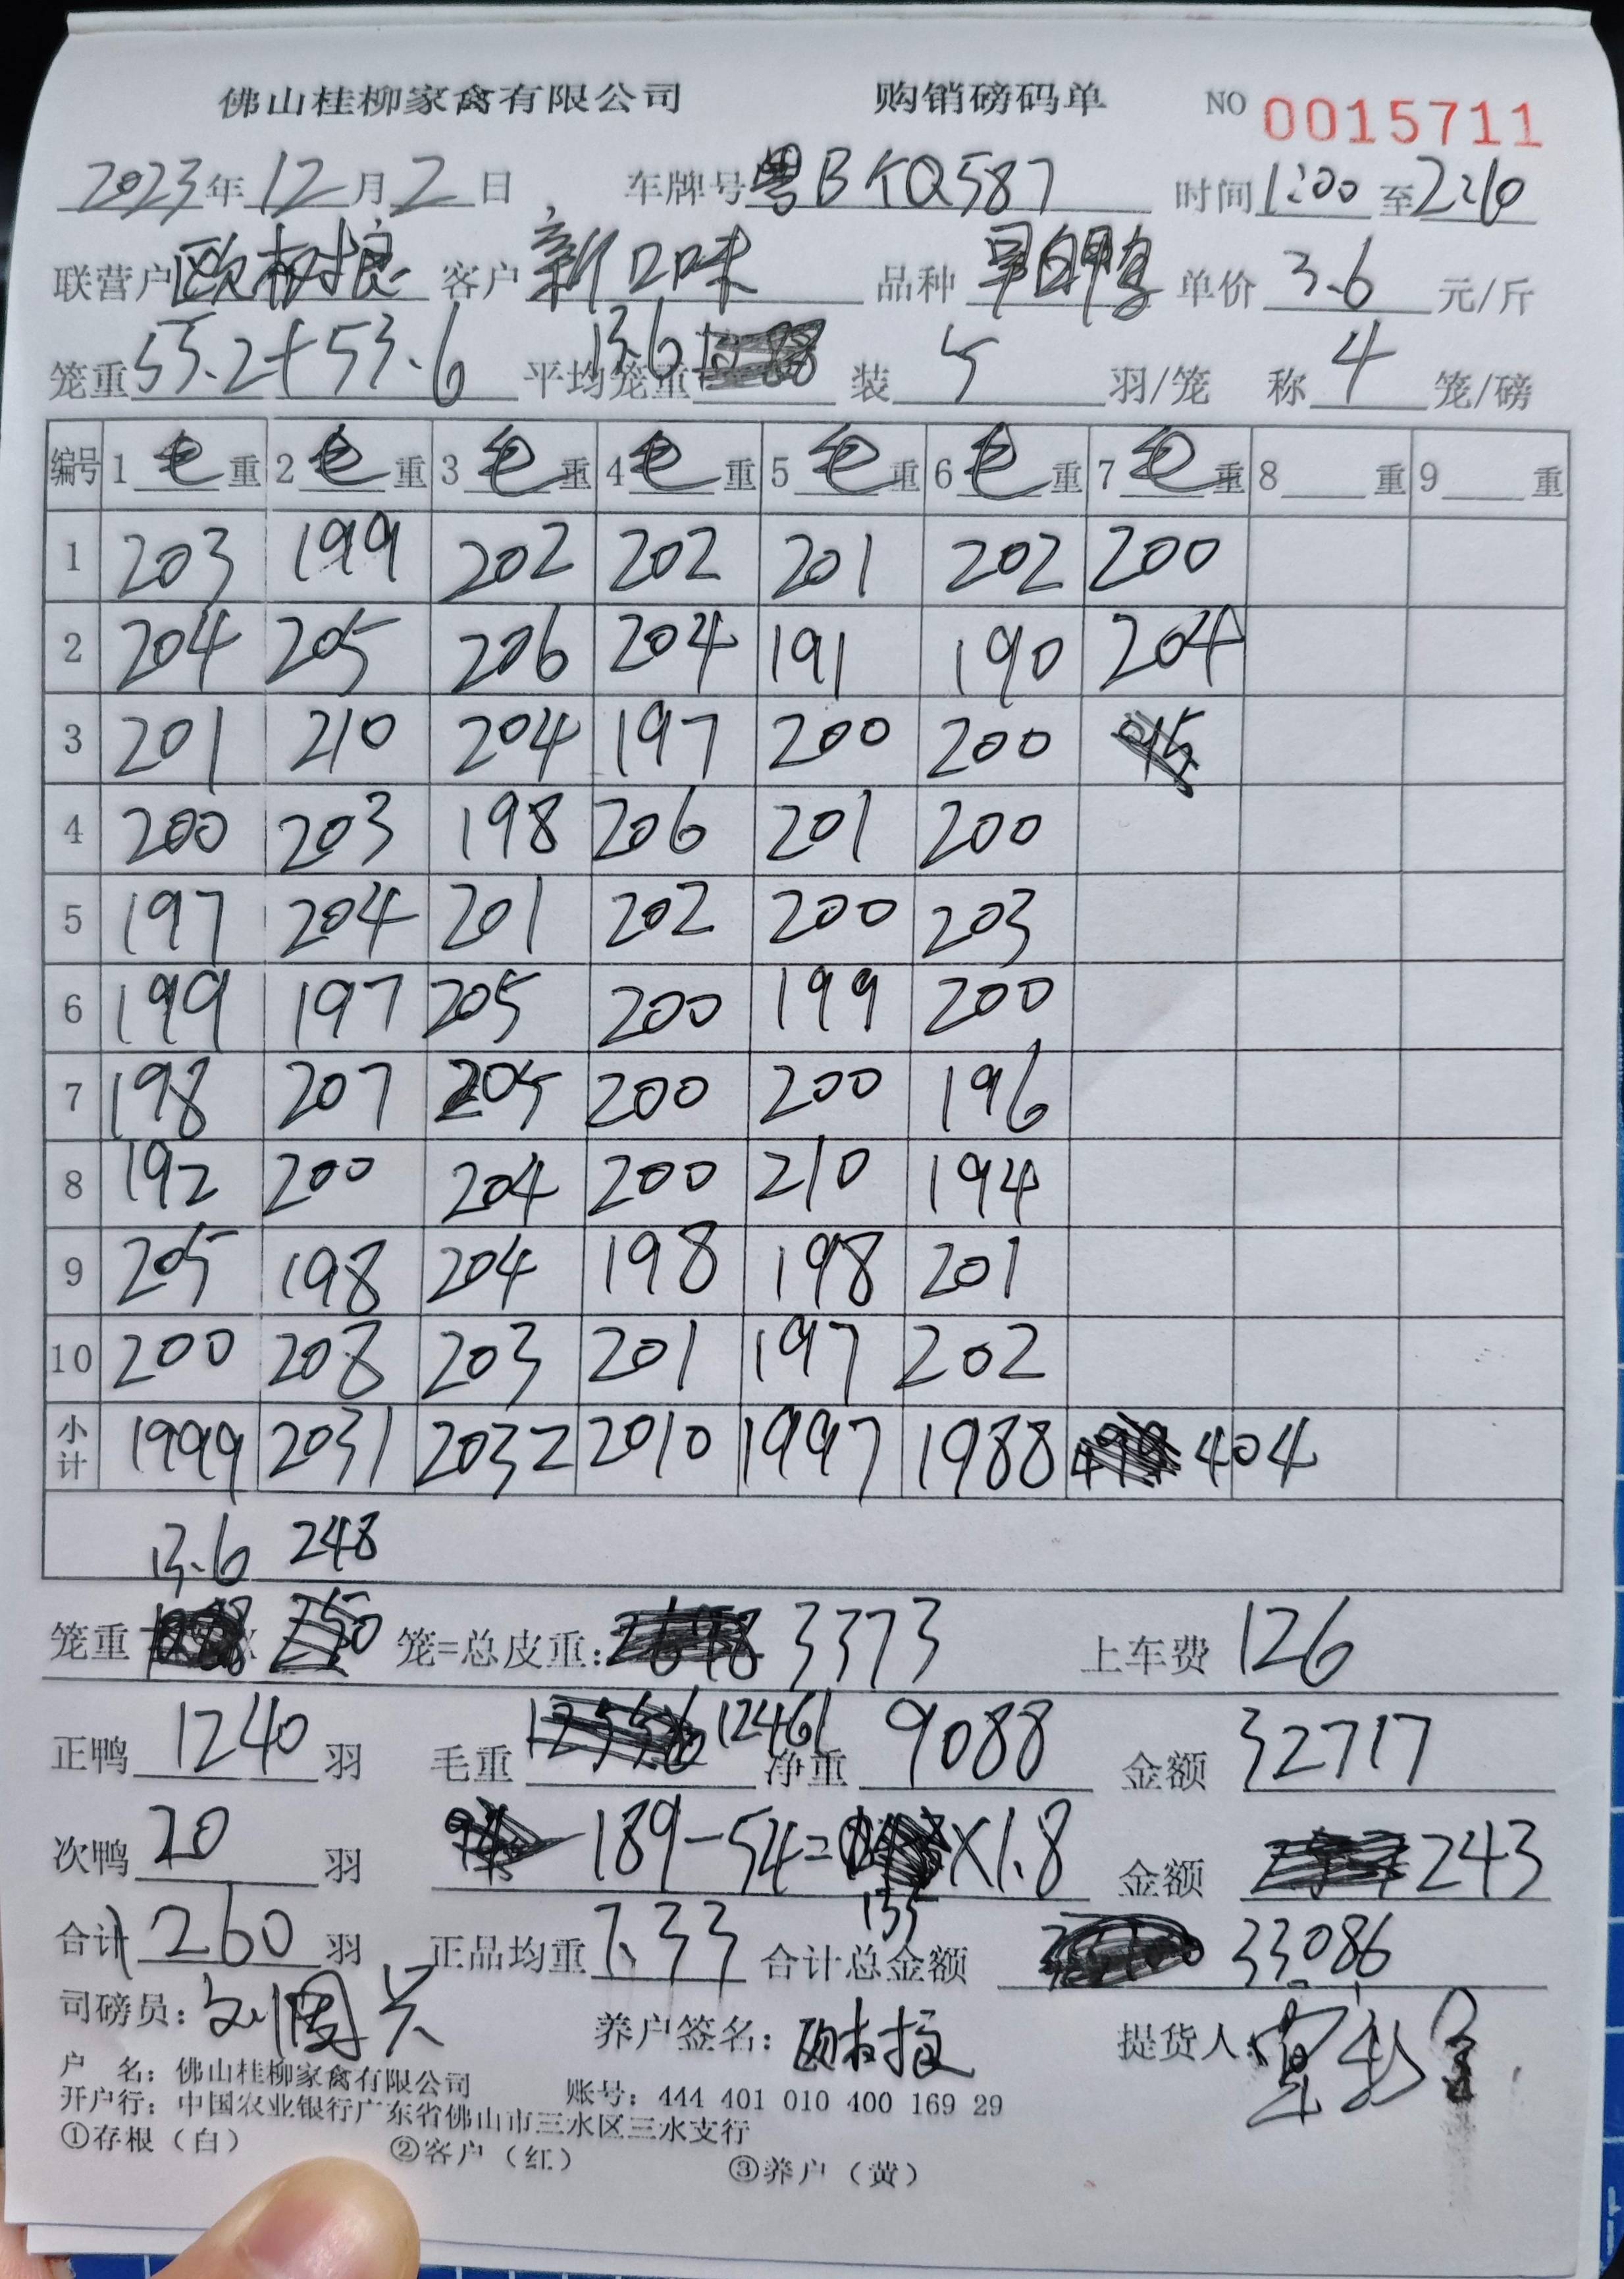 佛山桂柳家禽有限公司 购销磅码单 NO 0015711
2023年12月2日 车牌号粤BKQ587 时间1:00至2:40
联营户欧树 客户新口味 品种 白鸭 单价3.6元/斤
笼重53.2+53.6 平均笼重13.6 装5羽/笼 称4笼/磅
编号 1毛重 2毛重 3毛重 4毛重 5毛重 6毛重 7毛重 8重 9重
1 203 199 202 202 201 202 200
2 204 205 206 204 191 190 204
3 201 210 204 197 200 200
4 200 203 198 206 201 200
5 197 204 201 202 200 203
6 199 197 205 200 199 200
7 198 207 205 200 200 196
8 192 200 204 200 210 194
9 205 198 204 198 198 201
10 200 208 203 201 197 202
小计 1999 2031 2032 2010 1997 1988 404
13.6 248
笼重 X 250 笼=总皮重: 3373 上车费 126
正鸭1240羽 毛重12461 净重9088 金额32717
次鸭20羽 189-54=135×1.8 金额243
合计1260羽 正品均重7.33 合计总金额33086
司磅员: 养户签名: 提货人:
户 名: 佛山桂柳家禽有限公司 账号: 444 401 010 400 169 29
开户行: 中国农业银行广东省佛山市三水区三水支行
①存根（白） ②客户（红） ③养户（黄）